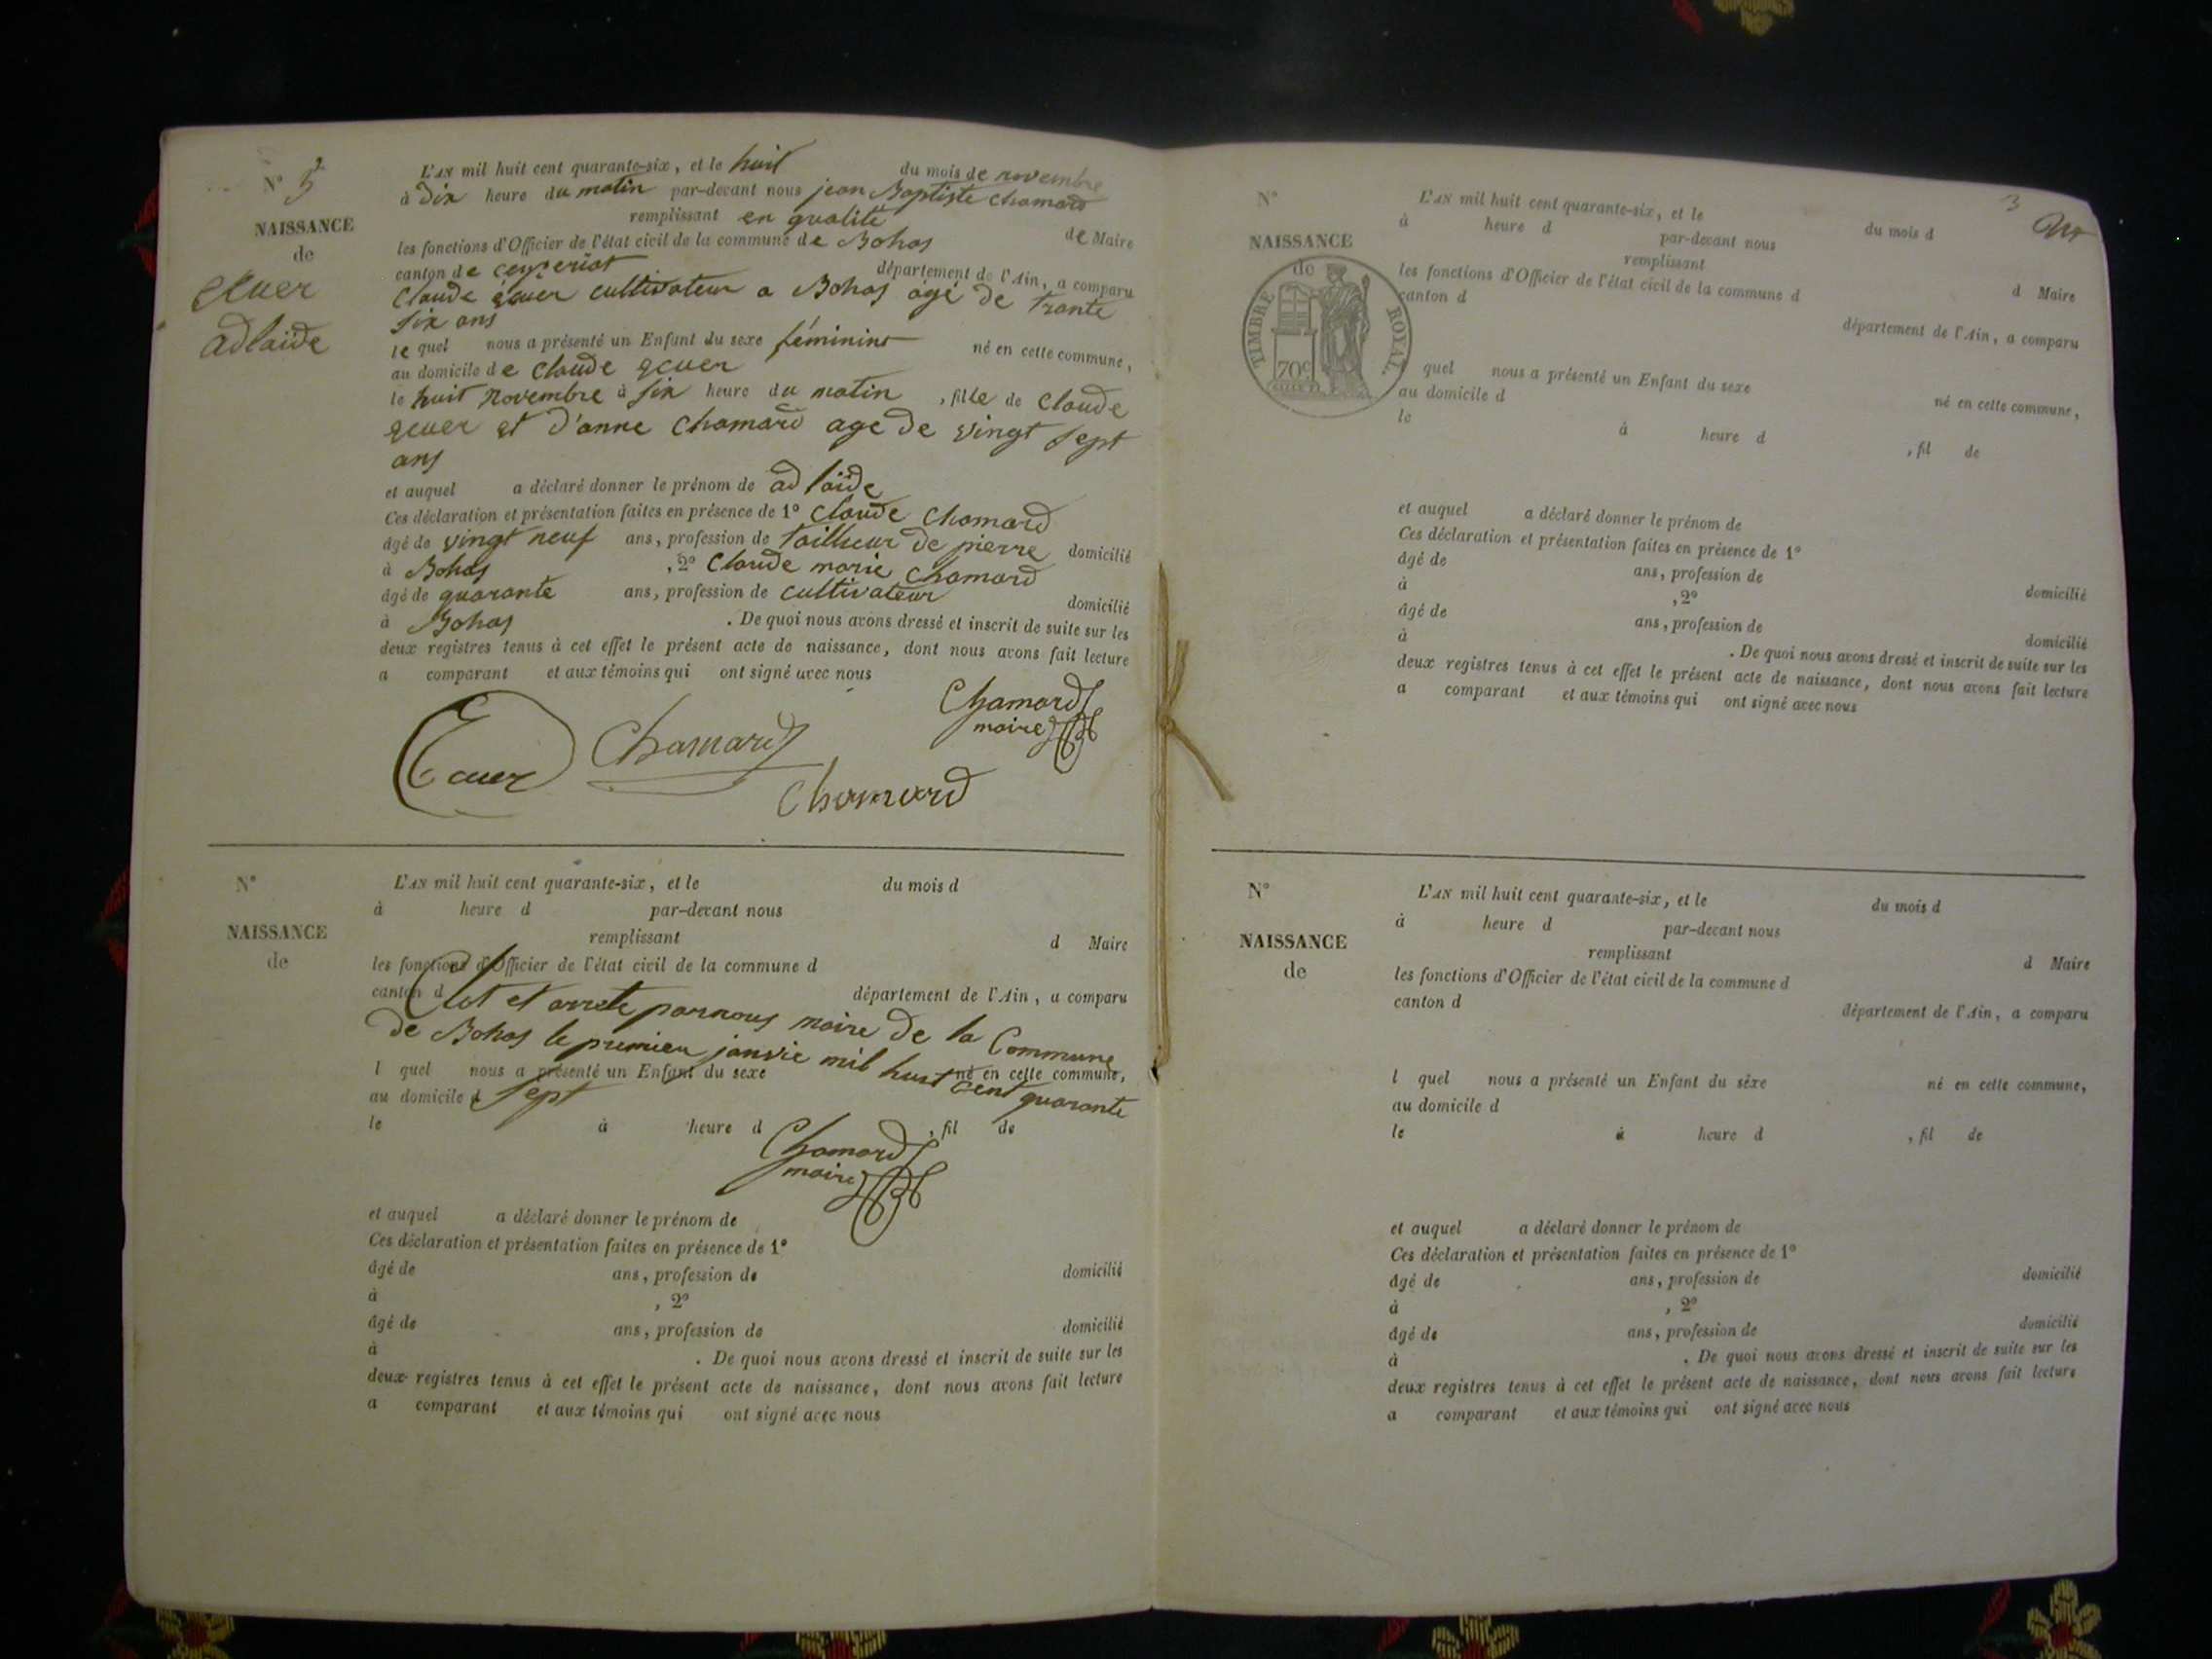 N° 5
NAISSANCE
de
Ecuer
adlaïde
L'AN mil huit cent quarante-six, et le huit du mois de novembre
à Dix heure du matin par-devant nous jean Baptiste chamard
remplissant en qualité de Maire
les fonctions d'Officier de l'état civil de la commune de Bohas
canton de ceyzeriat département de l'Ain, a comparu
Claude ecuer cultivateur a Bohas agé de trante
six ans
le quel nous a présenté un Enfant du sexe féminin né en cette commune,
au domicile de Claude ecuer
le huit novembre à six heure du matin, fille de Claude
ecuer et d'anne Chamard age de vingt sept
ans
et auquel a déclaré donner le prénom de adlaïde
Ces déclaration et présentation faites en présence de 1° Claude Chamard
âgé de vingt neuf ans, profession de tailleur de pierre domicilié
à Bohas, 2° Claude marie Chamard
âgé de quarante ans, profession de cultivateur domicilié
à Bohas. De quoi nous avons dressé et inscrit de suite sur les
deux registres tenus à cet effet le présent acte de naissance, dont nous avons fait lecture
a comparant et aux témoins qui ont signé avec nous
Chamard
maire
Ecuer Chamard
Chamard
N°
NAISSANCE
de
L'AN mil huit cent quarante-six, et le du mois d
à heure d par-devant nous
remplissant d Maire
les fonctions d'Officier de l'état civil de la commune d
canton d département de l'Ain, a comparu
Clot et arrete par nous maire de la Commune
de Bohas le premier janvie mil huit cent quarante
sept
l quel nous a présenté un Enfant du sexe né en cette commune,
au domicile d
le à heure d , fil de
Chamard
maire
et auquel a déclaré donner le prénom de
Ces déclaration et présentation faites en présence de 1°
âgé de ans, profession de domicilié
à , 2°
âgé de ans, profession de domicilié
à . De quoi nous avons dressé et inscrit de suite sur les
deux registres tenus à cet effet le présent acte de naissance, dont nous avons fait lecture
a comparant et aux témoins qui ont signé avec nous
3
N°
NAISSANCE
de
TIMBRE ROYAL.
70c
L'AN mil huit cent quarante-six, et le du mois d
à heure d par-devant nous
remplissant d Maire
les fonctions d'Officier de l'état civil de la commune d
canton d département de l'Ain, a comparu
quel nous a présenté un Enfant du sexe né en cette commune,
au domicile d
le à heure d , fil de
et auquel a déclaré donner le prénom de
Ces déclaration et présentation faites en présence de 1°
âgé de ans, profession de domicilié
à , 2°
âgé de ans, profession de domicilié
à . De quoi nous avons dressé et inscrit de suite sur les
deux registres tenus à cet effet le présent acte de naissance, dont nous avons fait lecture
a comparant et aux témoins qui ont signé avec nous
N°
NAISSANCE
de
L'AN mil huit cent quarante-six, et le du mois d
à heure d par-devant nous
remplissant d Maire
les fonctions d'Officier de l'état civil de la commune d
canton d département de l'Ain, a comparu
l quel nous a présenté un Enfant du sexe né en cette commune,
au domicile d
le à heure d , fil de
et auquel a déclaré donner le prénom de
Ces déclaration et présentation faites en présence de 1°
âgé de ans, profession de domicilié
à , 2°
âgé de ans, profession de domicilié
à . De quoi nous avons dressé et inscrit de suite sur les
deux registres tenus à cet effet le présent acte de naissance, dont nous avons fait lecture
a comparant et aux témoins qui ont signé avec nous